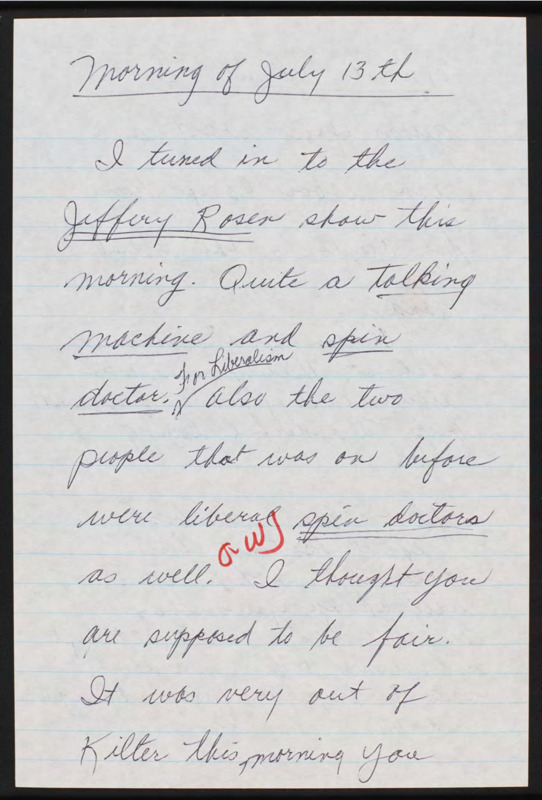 Morning of July 13th.
I tuned in to the
Jeffery Rosen show this
morning. Quite a talking
machine and spin
For Liberalism
doctor. Also the two
people that was on before
were liberal spin doctors
as well. I thought you
are supposed to be fair.
It was very out of
Kilter this, morning you